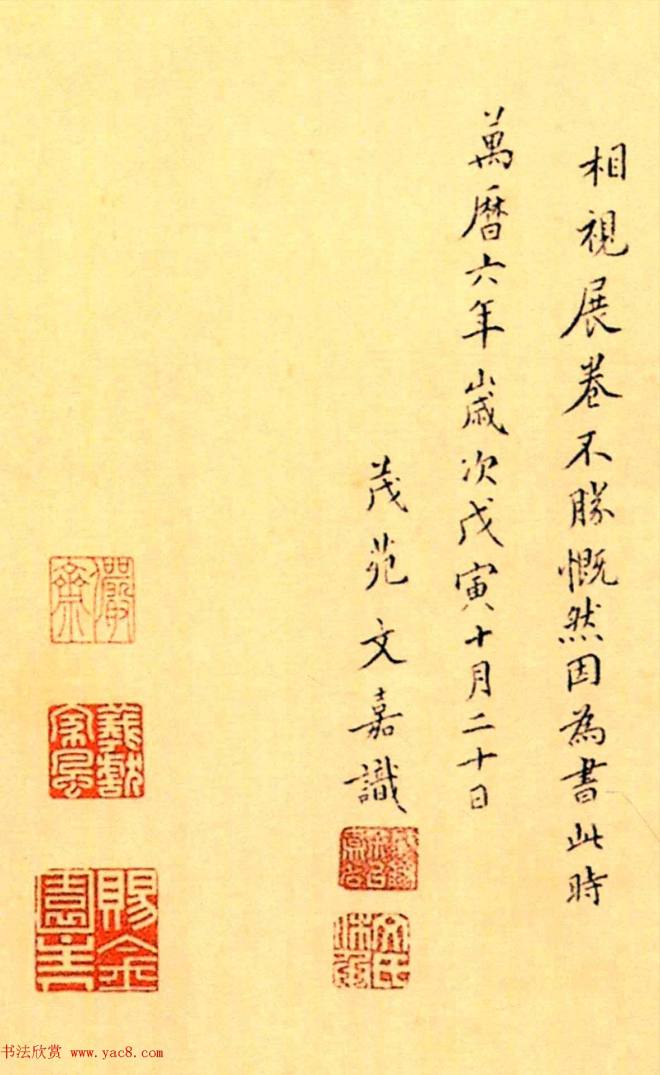 相視展卷不勝慨然因為書此時
萬曆六年歲次戊寅十月二十日
茂苑文嘉識
文氏休承
儼齋
賜金園
书法欣赏 www.yac8.com